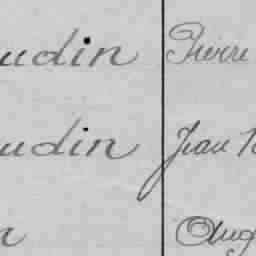 udin Pierre
udin Jean
n Aug